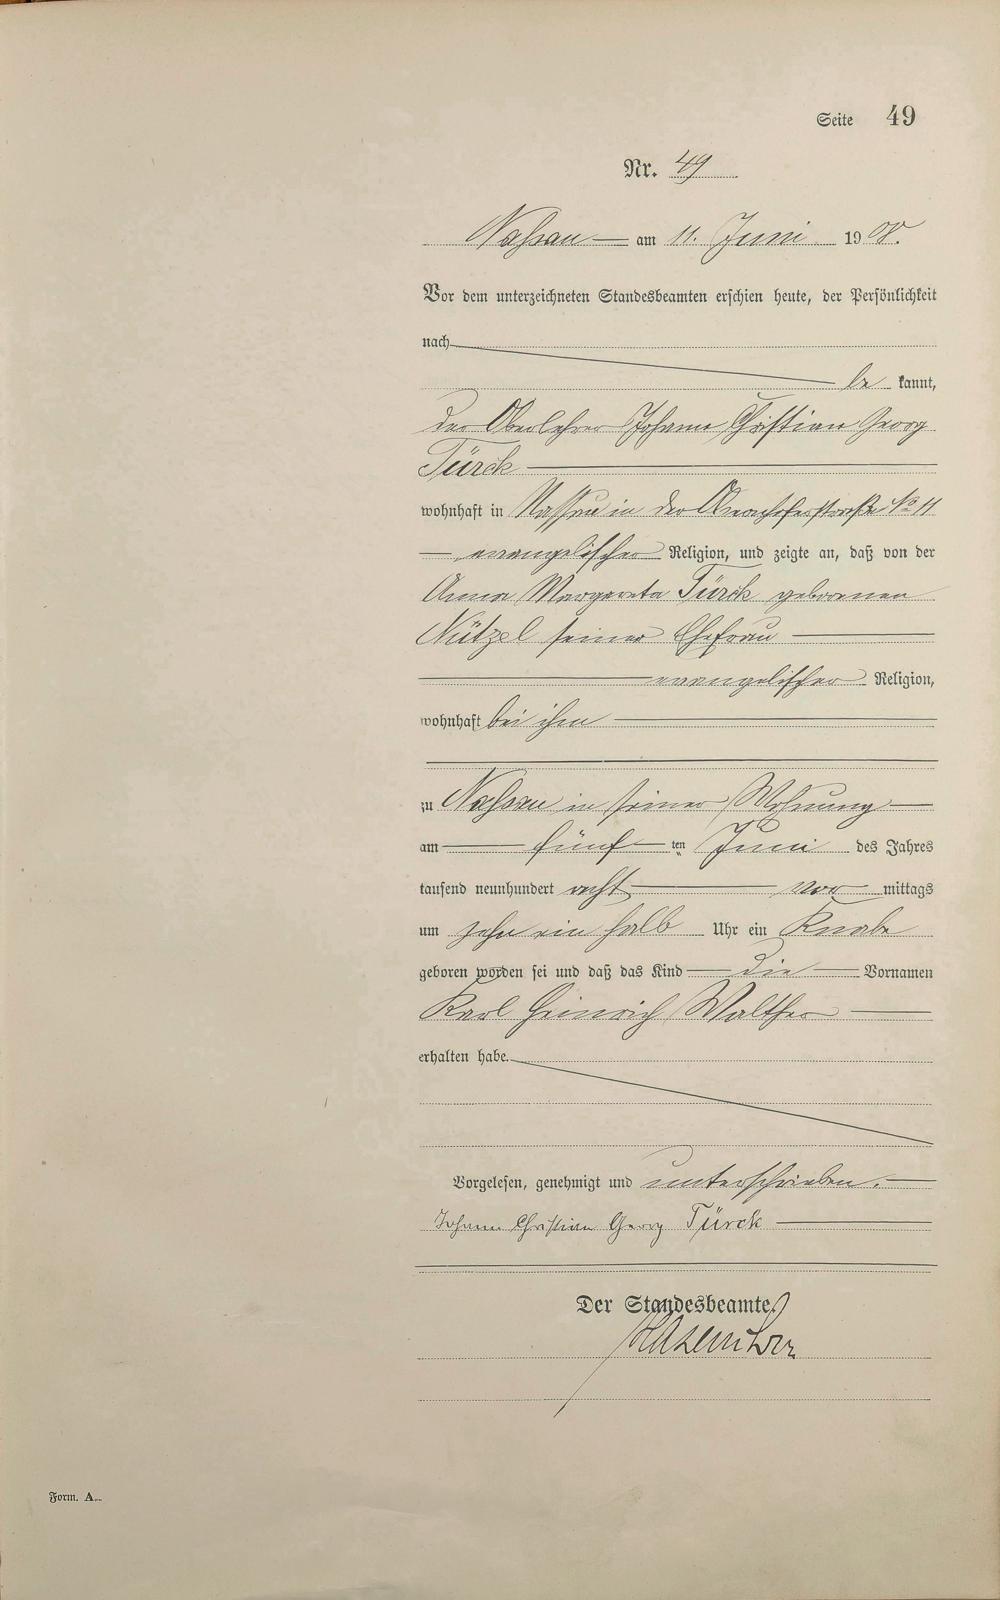 Seite 49
Nr. 49
Nassau am 11. Juni 1908.
Vor dem unterzeichneten Standesbeamten erschien heute, der Persönlichkeit
nach
be kannt,
der Oberlehrer Johann Christian Georg
Türck
wohnhaft in Nassau in der No 11
evangelischer Religion, und zeigte an, daß von der
Anna Margareta Türck geborenen
Nützel seiner Ehefrau
evangelischer Religion,
wohnhaft bei ihm
zu Nassau in seiner Wohnung
am fünf ten Juni des Jahres
tausend neunhundert acht vor mittags
um zehn ein halb Uhr ein Knabe
geboren worden sei und daß das Kind die Vornamen
Karl Heinrich Walther
erhalten habe.
Vorgelesen, genehmigt und unterschrieben.
Johann Christian Georg Türck
Der Standesbeamte.
Form. A.